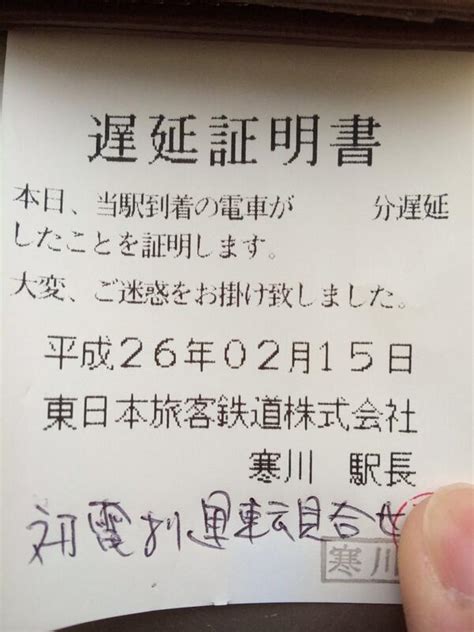 遅延証明書
本日、当駅到着の電車が　　　分遅延
したことを証明します。
大変、ご迷惑をお掛け致しました。
平成26年02月15日
東日本旅客鉄道株式会社
寒川　駅長
初電より運転見合せ
寒川